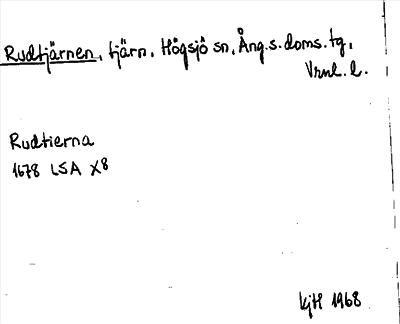 Rudtjärnen, tjärn, Högsjö sn, Ång.s.doms.tg,
Vrnl. l.
Rudtierna
1678 LSA X8
KjH 1968